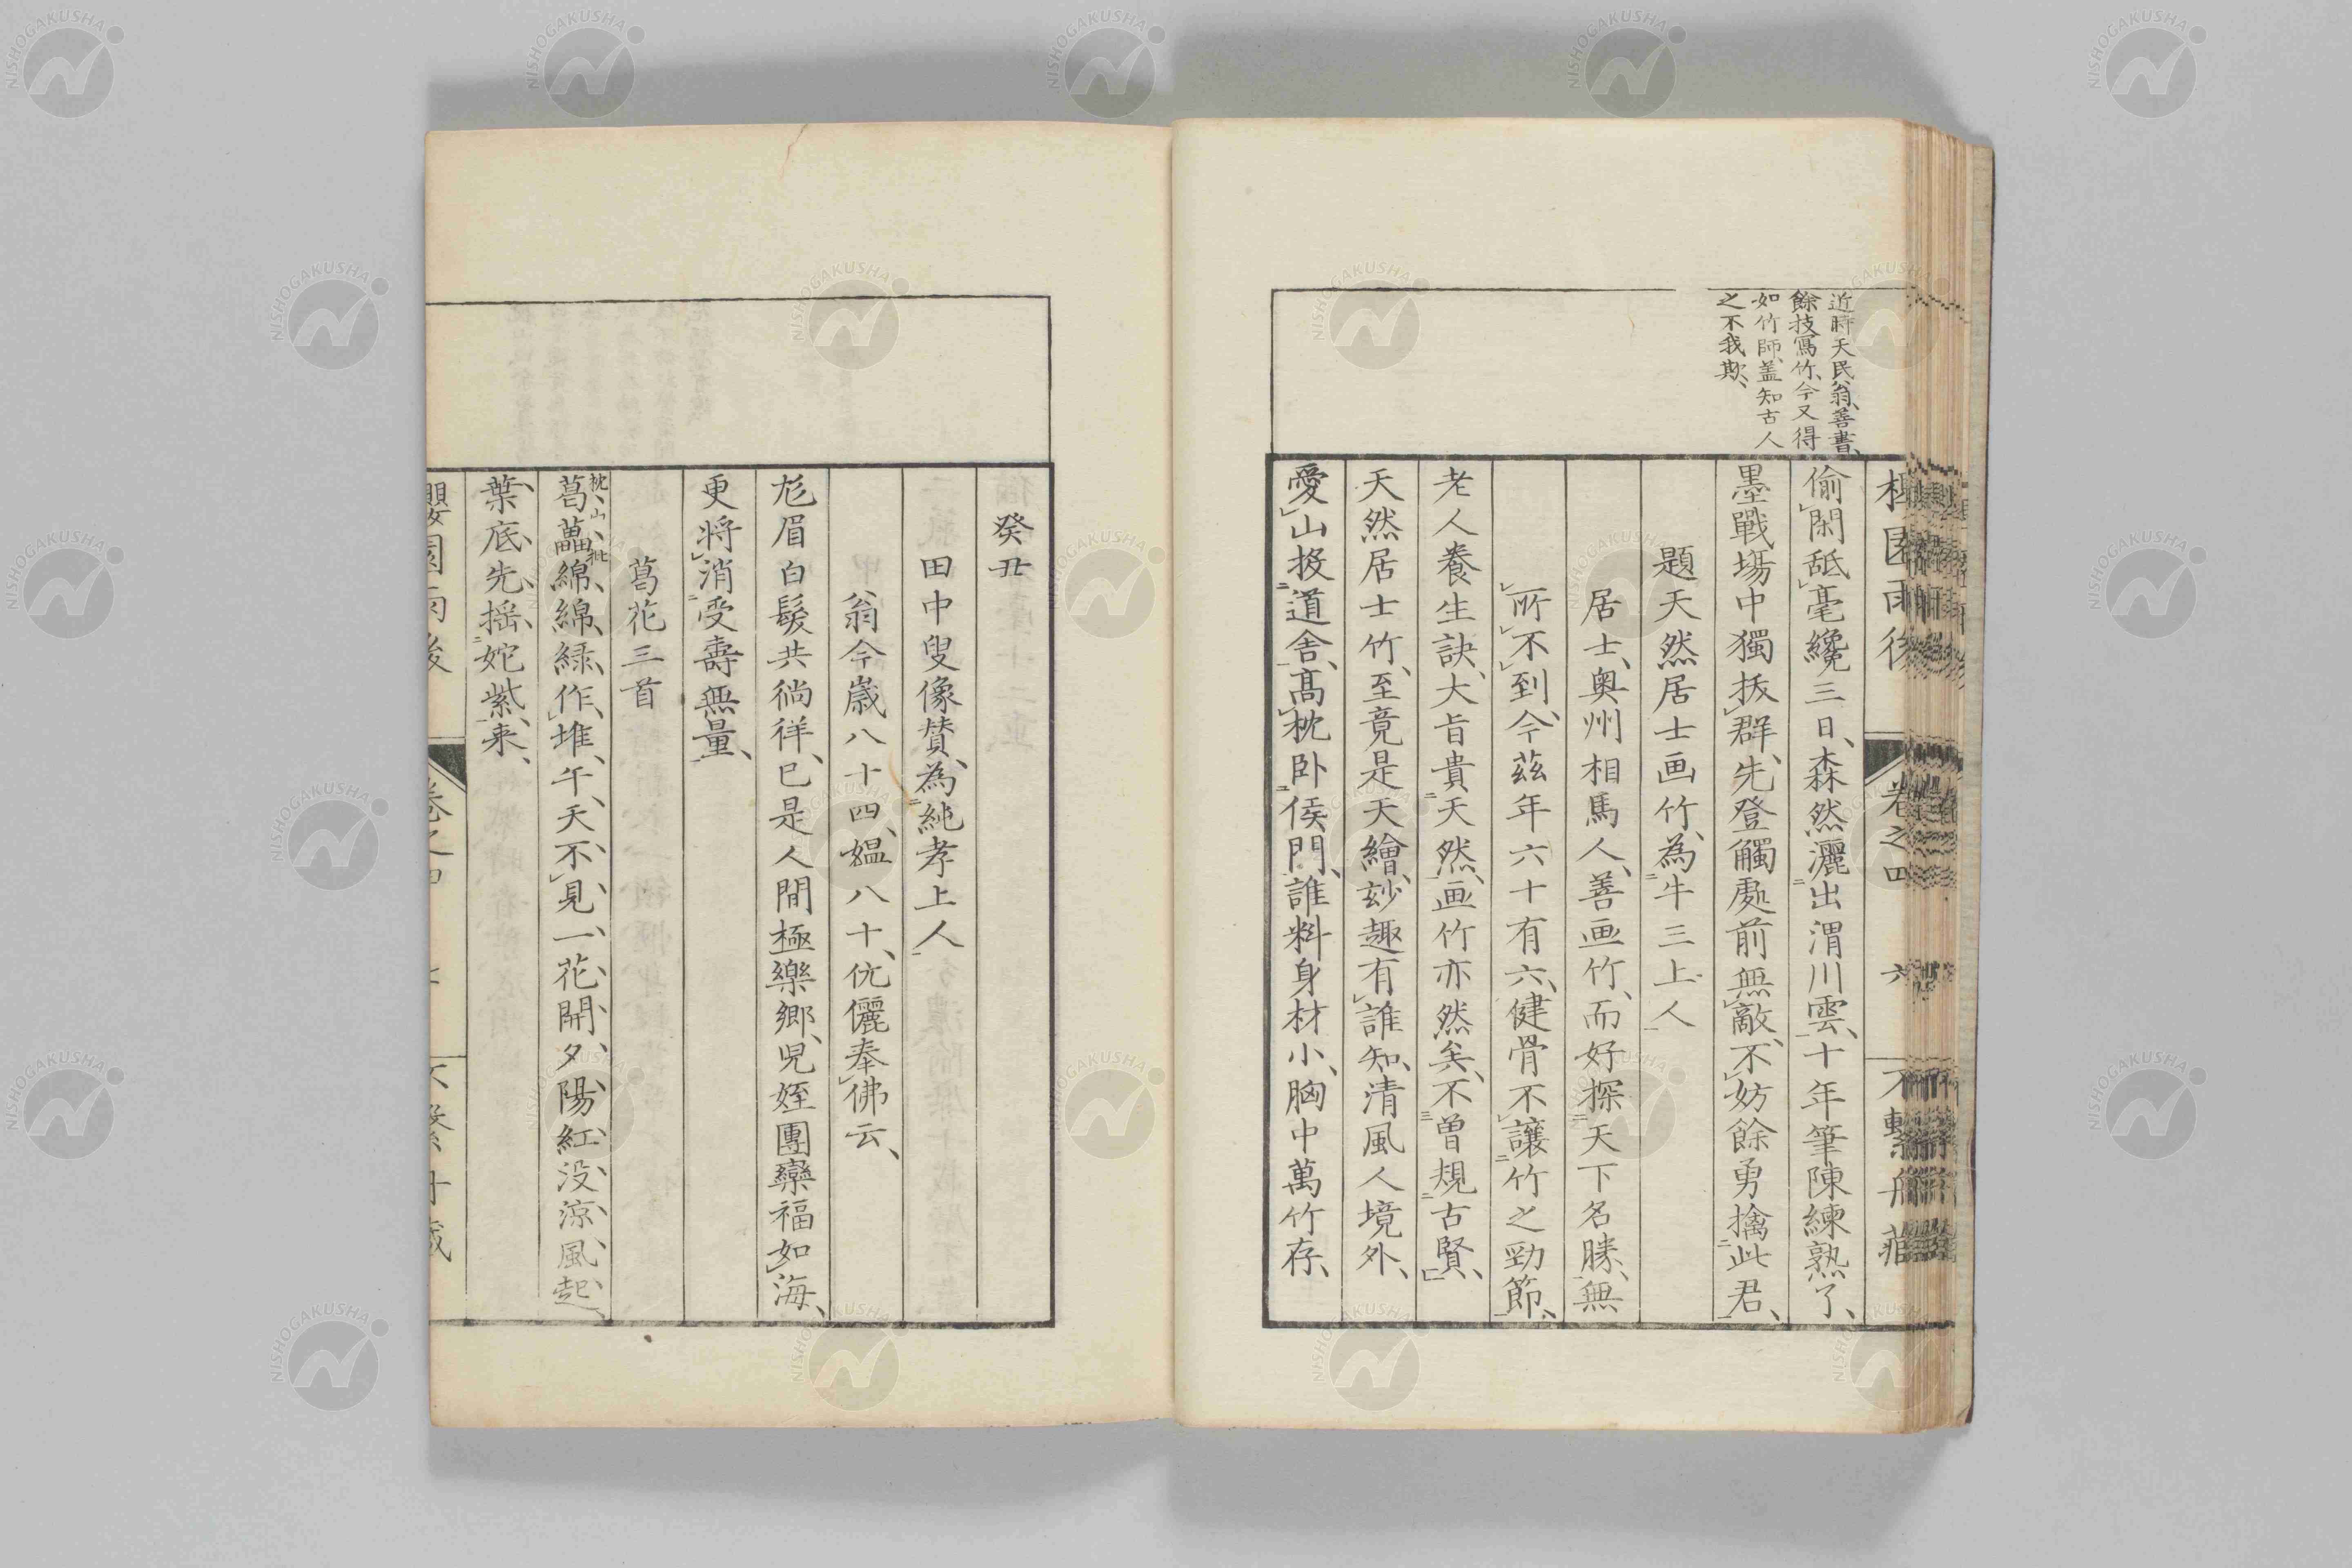 近時天民翁、善書、
餘技寫竹、今又得
如竹師、盖知古人
之不我欺、
偷閑舐毫纔三日、森然灑出渭川雲、十年筆陳練熟了、
墨戰場中獨拔群、先登觸處前無敵、不妨餘勇擒此君、
題天然居士画竹、為牛三上人
居士、奥州相馬人、善画竹、而好探天下名勝、無
所不到、今茲年六十有六、健骨不讓竹之勁節、
老人養生訣、大旨貴天然、画竹亦然矣、不曾規古賢、
天然居士竹、至竟是天繪、玅趣有誰知、清風人境外、
愛山投道舎、髙枕卧侯門、誰料身材小、胸中萬竹存、
卷之四
六
癸丑
田中叟像賛、為純孝上人
翁今歳八十四、媼八十、伉儷奉佛云、
尨眉白髮共徜徉、已是人間極樂鄉、児姪團欒福如海、
更将消受壽無量、
葛花三首
枕山批
葛藟綿綿緑作堆、午天不見一花開、夕陽紅没涼風起、
葉底先揺姹紫来、